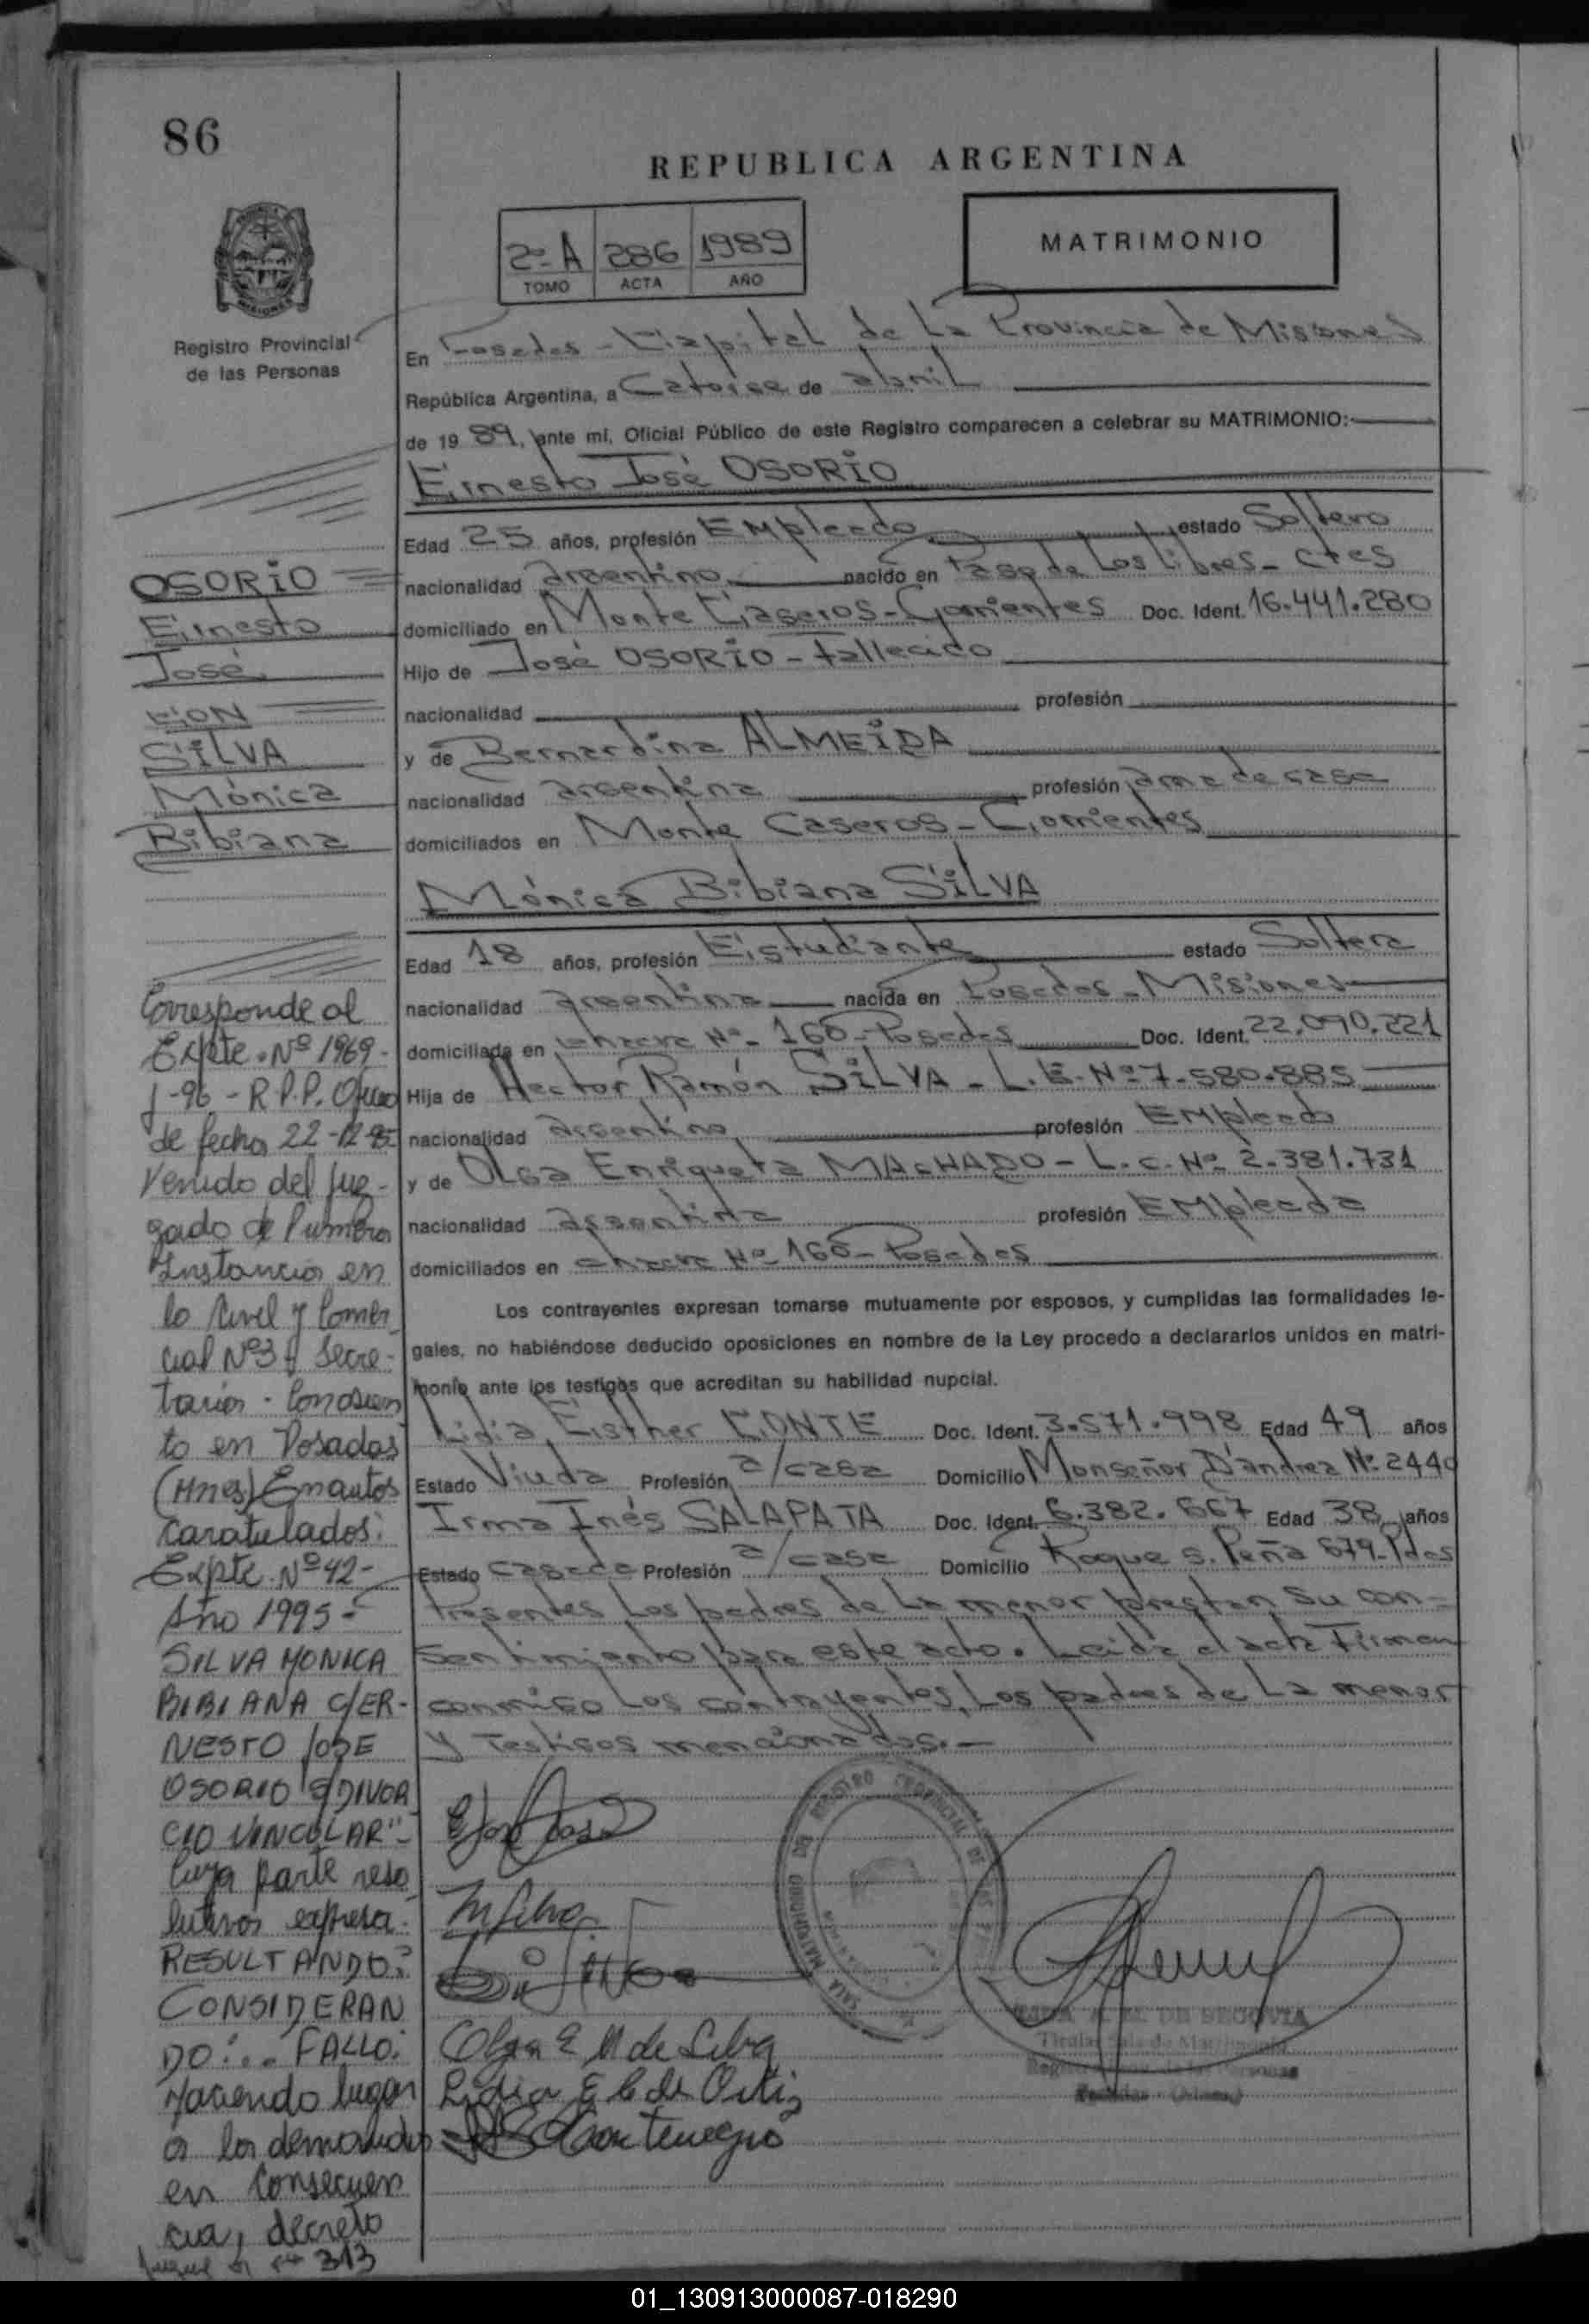 86
REPUBLICA ARGENTINA
2º A 286 1989
TOMO ACTA AÑO
MATRIMONIO
Registro Provincial
de las Personas
En Posadas - Capital de La Provincia de Misiones
República Argentina, a Catorce de abril
de 19 89, ante mí, Oficial Público de este Registro comparecen a celebrar su MATRIMONIO:
Ernesto José OSORIO
Edad 25 años, profesión Empleado estado Soltero
nacionalidad argentino nacido en Paso de Los Libres - Ctes
domiciliado en Monte Caseros - Corrientes Doc. Ident. 16.441.280
Hijo de José OSORIO - fallecido
nacionalidad profesión
y de Bernardina ALMEIDA
nacionalidad argentina profesión ama de casa
domiciliados en Monte Caseros - Corrientes
Mónica Bibiana SILVA
Edad 18 años, profesión Estudiante estado Soltera
nacionalidad argentina nacida en Posadas - Misiones
domiciliada en Nº 160 - Posadas Doc. Ident. 22.090.221
Hija de Hector Ramón SILVA - L.E. Nº 7.580.885
nacionalidad argentino profesión Empleado
y de Olga Enriqueta MACHADO - L.C. Nº 2.381.731
nacionalidad argentina profesión Empleada
domiciliados en Nº 160 - Posadas
Los contrayentes expresan tomarse mutuamente por esposos, y cumplidas las formalidades le-
gales, no habiéndose deducido oposiciones en nombre de la Ley procedo a declararlos unidos en matri-
monio ante los testigos que acreditan su habilidad nupcial.
Lidia Esther CONTE Doc. Ident. 3.571.998 Edad 49 años
Estado Viuda Profesión a/casa Domicilio Monseñor D'andrea Nº 2440
Irma Inés SALAPATA Doc. Ident. 6.382.667 Edad 38 años
Estado Casada Profesión a/casa Domicilio Roque S. Peña 679 - Pdas
Presentes Los padres de La menor prestan su con-
sentimiento para este acto. Leída el acta Firman
conmigo Los contrayentes, Los padres de La menor
y Testigos mencionados.-
OSORIO
Ernesto
José
CON
SILVA
Mónica
Bibiana
Corresponde al
Expte. Nº 1969-
J-96 - R.P.P. Oficio
de fecha 22-12-95
Venido del Juz-
gado de Primera
Instancia en
lo Civil y Comer
cial Nº 3 Secre-
taria
to en Posadas
(Mnes) En autos
caratulados:
Expte. Nº 42-
Año 1995-
SILVA MONICA
BIBIANA C/ER-
NESTO JOSE
OSORIO S/DIVOR
CIO VINCULAR"-
Cuya parte reso
lutiva expresa:
RESULTANDO:
CONSIDERAN
DO:... FALLO:
Haciendo lugar
a la demanda
en Consecuen
cia, decreto
313
Olga E M de Silva
Lidia E C de Ortiz
DE SEGOVIA
01_130913000087-018290